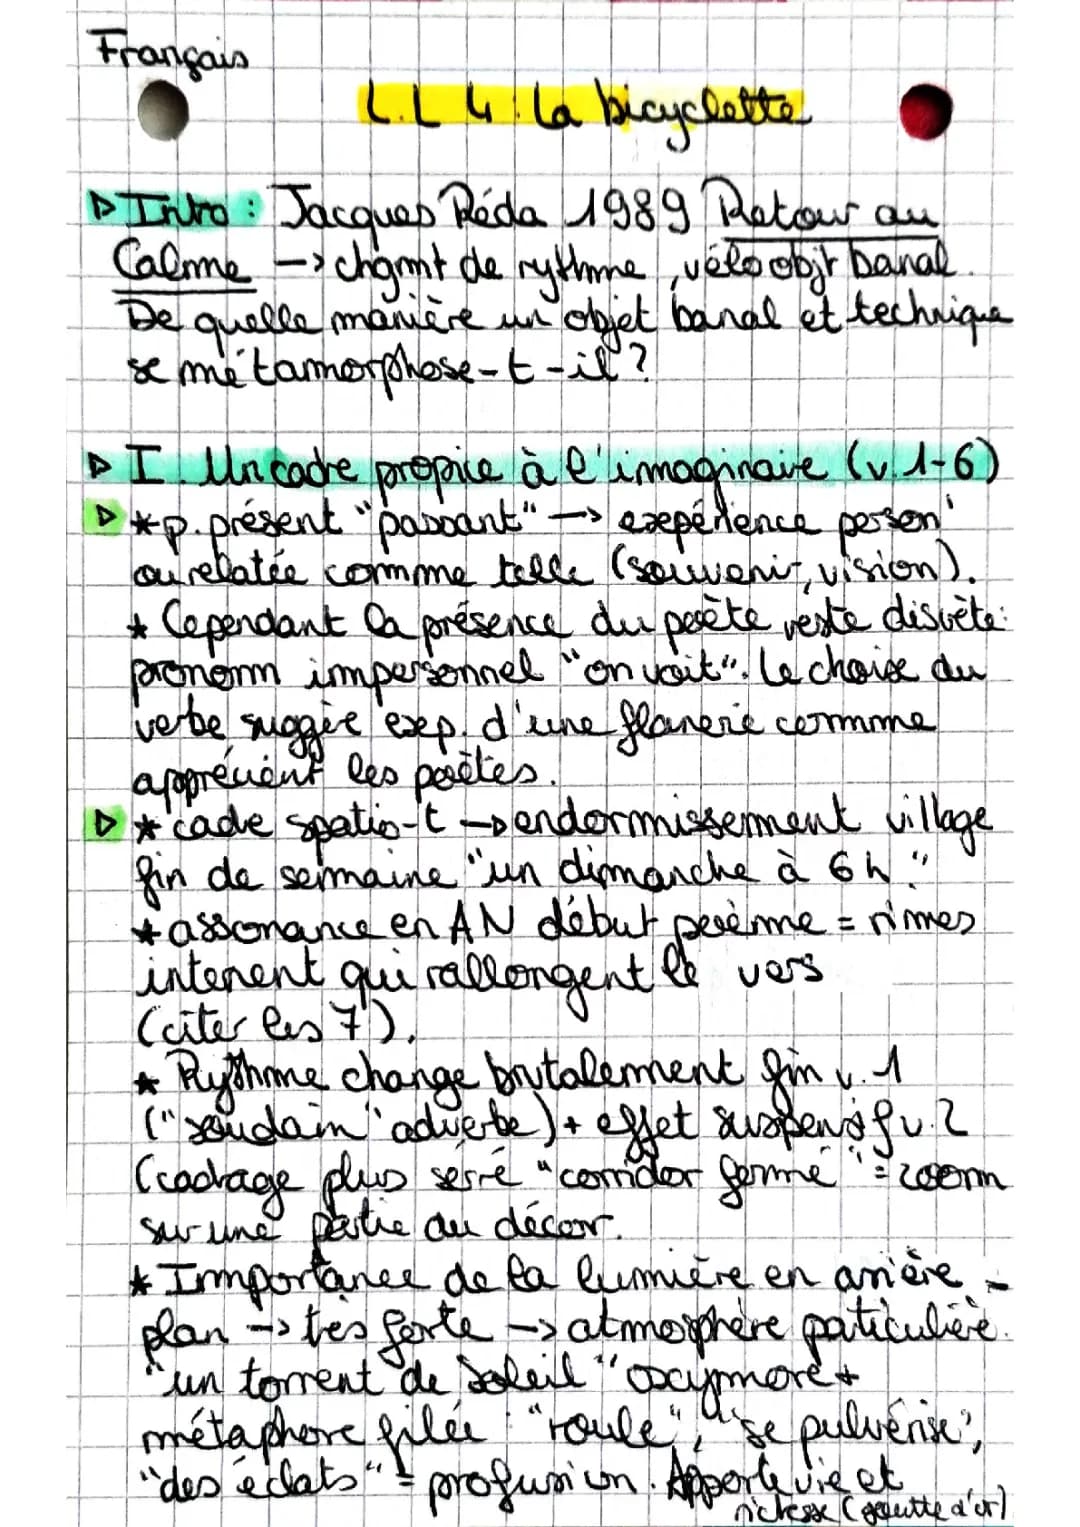 Français
L.L 4 : La bicyclette
▷ Intro : Jacques Réda 1989 Retour au
Calme -> chgmt de rythme, vélo objt banal.
De quelle manière un objet banal et technique
se métamorphose-t-il ?
▷ I. Un cadre propice à l'imaginaire (v.1-6)
▷ * p. présent "passant" -> expérience person'
ou relatée comme telle (souvenir, vision).
* Cependant la présence du poète reste discrète:
pronom impersonnel "on voit". Le choix du
verbe suggère exp. d'une flanerie comme
apprécient les poètes.
▷ * cadre spatio-t -> endormissement village
fin de semaine "un dimanche à 6h"
* assonance en AN début poème = rimes
internent qui rallongent le vers
(citer les 7).
* Rythme change brutalement fin v. 1
("soudain" adverbe) + effet suspensif v.2
(cadrage plus serré "corridor fermé" = zoom
sur une partie du décor.
* Importance de la lumière en arrière -
plan -> très forte -> atmosphère particulière.
"un torrent de soleil" oxymore +
métaphore filée : "roule", "se pulvérise",
"des éclats" = profusion. Apporte vie et
richesse (goutte d'or)